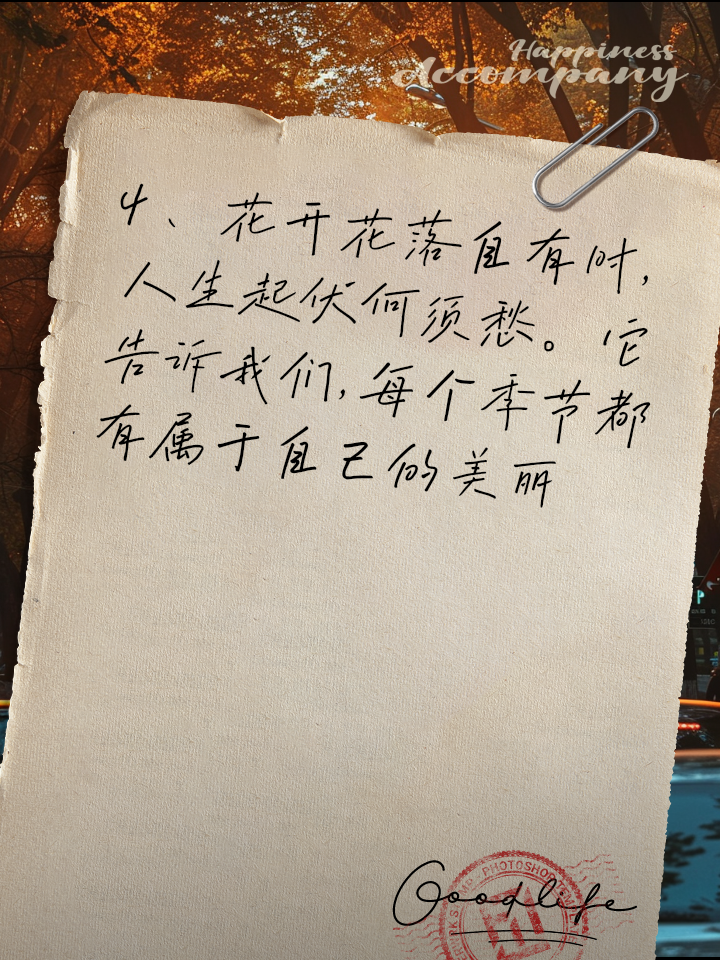 Happiness
Accompany
4、花开花落自有时,
人生起伏何须愁。它
告诉我们,每个季节都
有属于自己的美丽
PHOTOSHOP
Goodlife